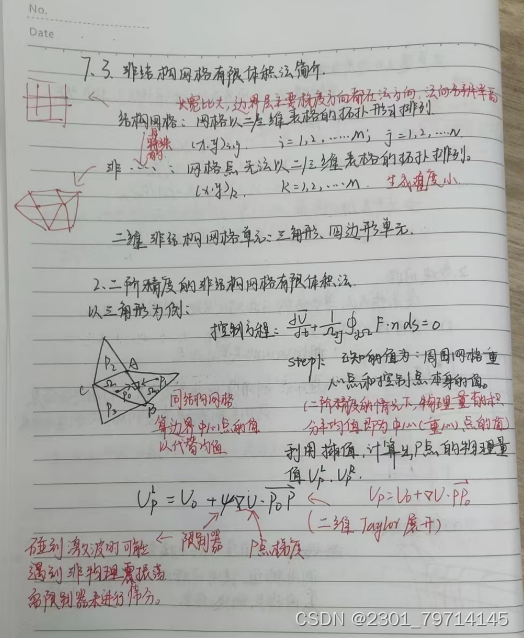 No.
Date
7.3. 非结构网格有限体积法简介.
长宽比大, 边界层主要梯度方向都在法方向, 法向分辨率高
结构网格: 网格以二/三维表格的拓扑形式排列
(x.y)i,j i=1,2,……M; j=1,2,……N
非……: 网格点无法以二/三维表格的拓扑排列.
(x.y)k K=1,2,……M. 生成难度小.
二维非结构网格单元: 三角形、四边形单元.
2. 二阶精度的非结构网格有限体积法
以三角形为例:
控制方程: dU/dt + 1/Ωij ∮∂Ω F·n ds = 0
step1. 已知的值为: 周围网格重
心点和控制点本身的值。
(二阶精度的情况下, 物理量的积
分平均值即为中心(重心)点的值)
C P2 A Ω P0 P P1 P3 B
同结构网格
算边界中心点的值
以代替均值
利用插值, 计算出P点的物理量
值 UpL, UpR.
UpL = U0 + ψ∇U·P0P ← Up=U0+∇U·PP0
(二维 Taylor 展开)
碰到激波时可能 ← 限制器 P点梯度
遇到非物理震振荡
需限制器来进行
CSDN @2301_79714145